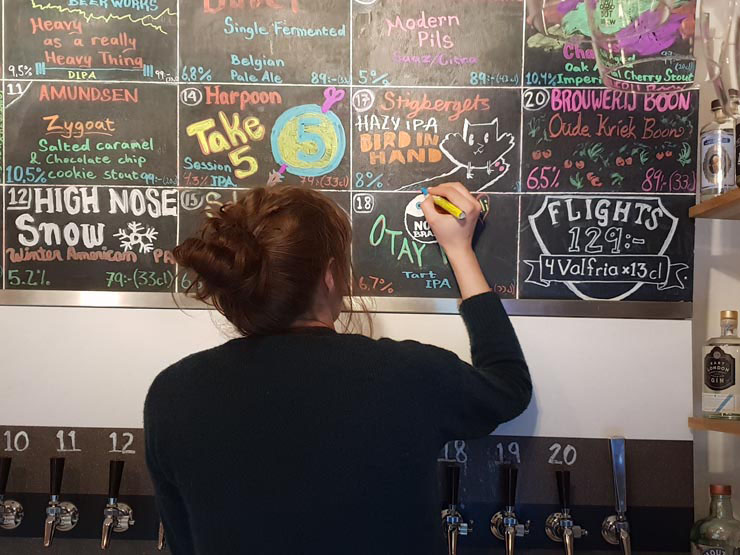 BEER WORKS
Heavy
as a really
Heavy Thing
9,5%
DIPA
Single Fermented
Belgian
Pale Ale
6,8%
89:-
Modern
Pils
Saaz/Citra
5%
89:-
10,4%
Oak
Imperi
l Cherry Stout
11
AMUNDSEN
Zygoat
Salted caramel
& Chocolate chip
10,5% cookie stout 99:-
14
Harpoon
Take
5
5
Session
IPA
17
Stigbergets
HAZY IPA
BIRD IN
HAND
8%
20
BROUWERIJ BOON
Oude Kriek Boon
6.5%
89:-(33cl)
12
HIGH NOSE
Snow
Winter American PA
5.2%
79:-(33cl)
15
18
OTAY
Tart
IPA
6.7%
FLIGHTS
129:-
4 Valfria x 13cl
10 11 12
18 19 20
LONDON
GIN